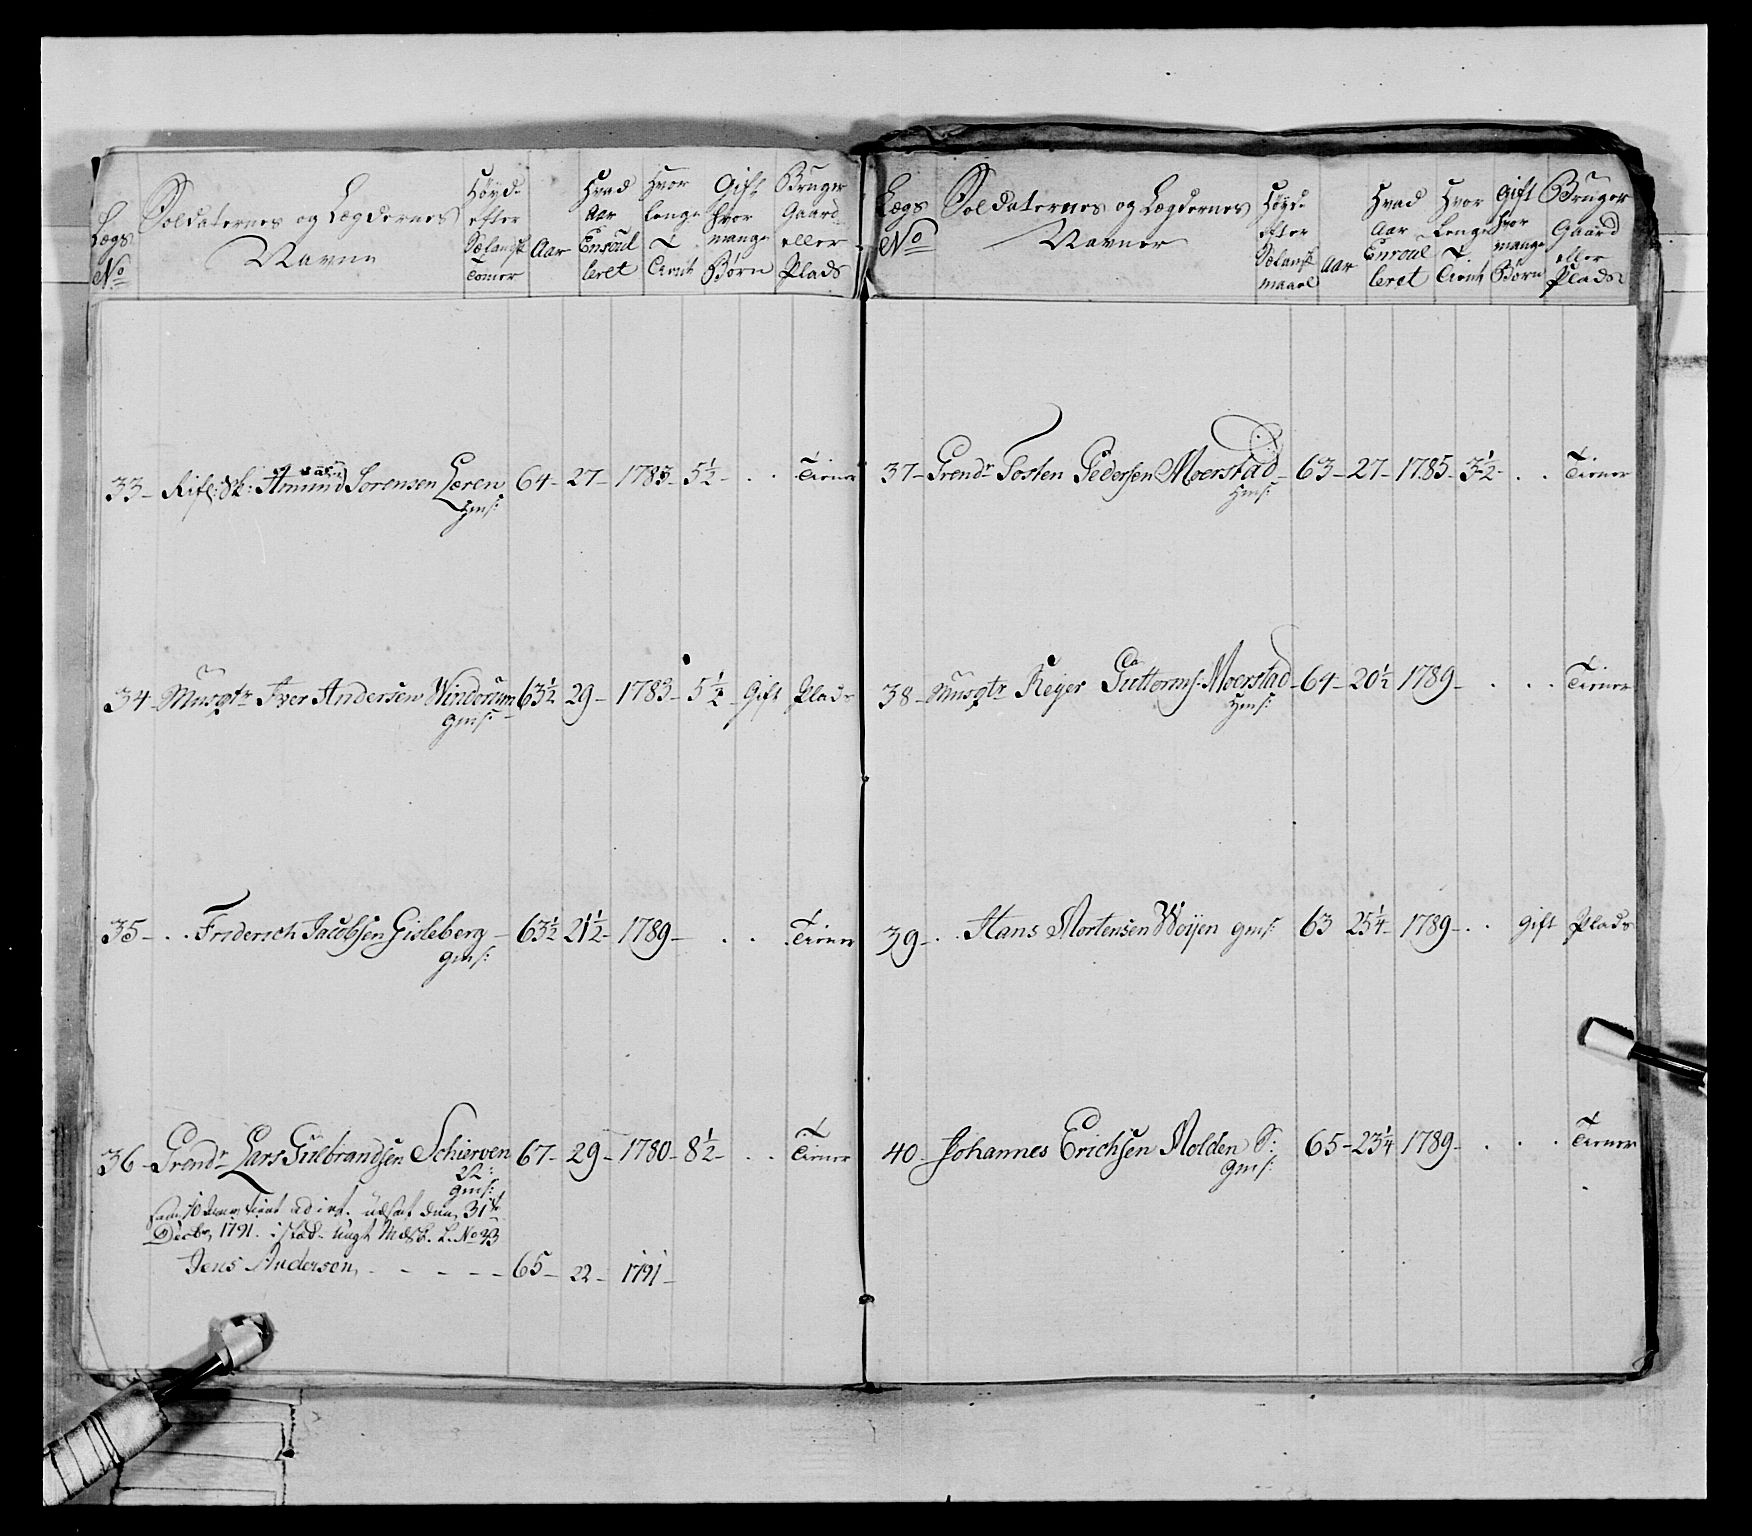 Lægs No
Soldaternes og Lægdernes Navne
Høyde efter Sælandsk Tomer
Aar
Hvad Aar Enroul leret
Hvor lenge T Tient
Gift hvor mange Børn
Bruger Gaard eller Plads
33 - Rifl: Sk: Amund Sorensen Leren 64 - 27 - 1783 - 5 1/2 - . . Tiener
Hms:
34 - Musqtr Iver Andersen Windorum 63 1/2 29 - 1783 - 5 1/2 - Gift Plads
gms:
35 - . . Friderich Jacobsen Gisleberg - 63 1/2 21 1/2 - 1789 - . . Tiener
gms:
36 - Grendr Lars Gulbrandsen Schierven 67 - 29 - 1780 - 8 1/2 - . . Tiener
gms:
udsat den 31te
Decbr 1791. i stæd L. No 43
Jens Andersen, - - - - - 65 - 22 - 1791 -
Lægs No
Soldaternes og Lægdernes Navner
Høyde efter Sælansk maael
Aar
Hvad Aar Enroul leret
Hvor Lenge T Tient
Gift hvor mange Børn
Bruger Gaard eller Plads
37 - Grendr Tosten Pedersen Moerstad - 63 - 27 - 1785 - 3 1/2 - . . Tiener
Hms:
38 - Musqtr Reyer Guttorms: Moerstad - 64 - 20 1/2 1789 - . . . Tiener
Hms:
39 - . . Hans Mortensen Weijen gms: 63 25 1/4 - 1789 - . . gift Plads
40 - Johannes Erichsen Molden S: 65 - 23 1/4 1789 - . . . Tiener
gms: